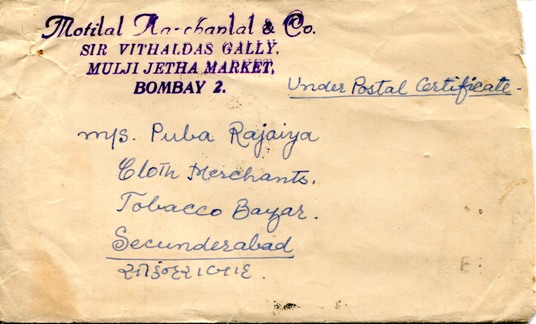 Motilal & Co.
SIR VITHALDAS GALLY,
MULJI JETHA MARKET,
BOMBAY 2.
Under Postal Certificate.
M/s. Puba Rajaiya
Cloth Merchants.
Tobacco Bazar.
Secunderabad